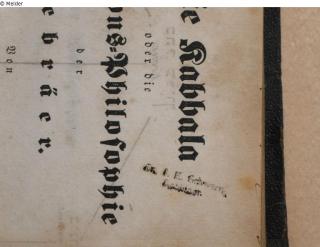 © Melder
ie Kabbala
oder die
ons-Philosophie
der
ebräer.
Von